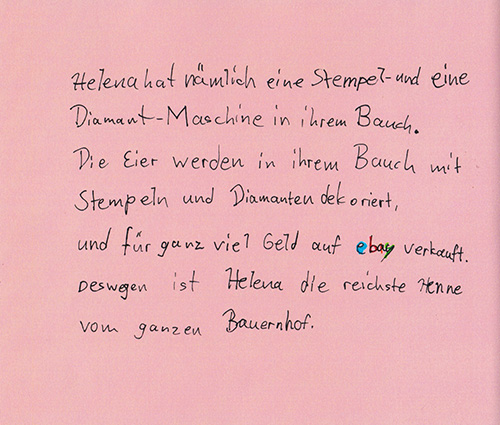 Helena hat nämlich eine Stempel- und eine
Diamant-Maschine in ihrem Bauch.
Die Eier werden in ihrem Bauch mit
Stempeln und Diamanten dekoriert,
und für ganz viel Geld auf ebay verkauft.
Deswegen ist Helena die reichste Henne
vom ganzen Bauernhof.